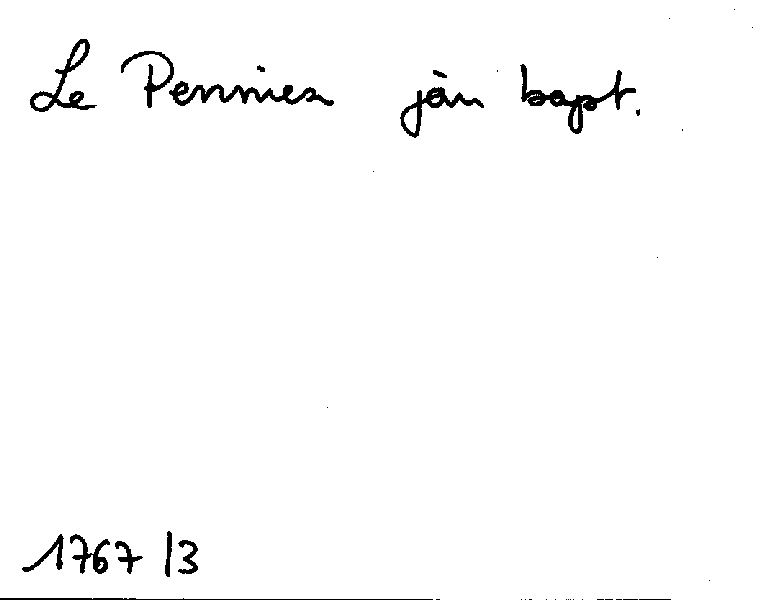 Le Pennier jân bapt.
1767 /3